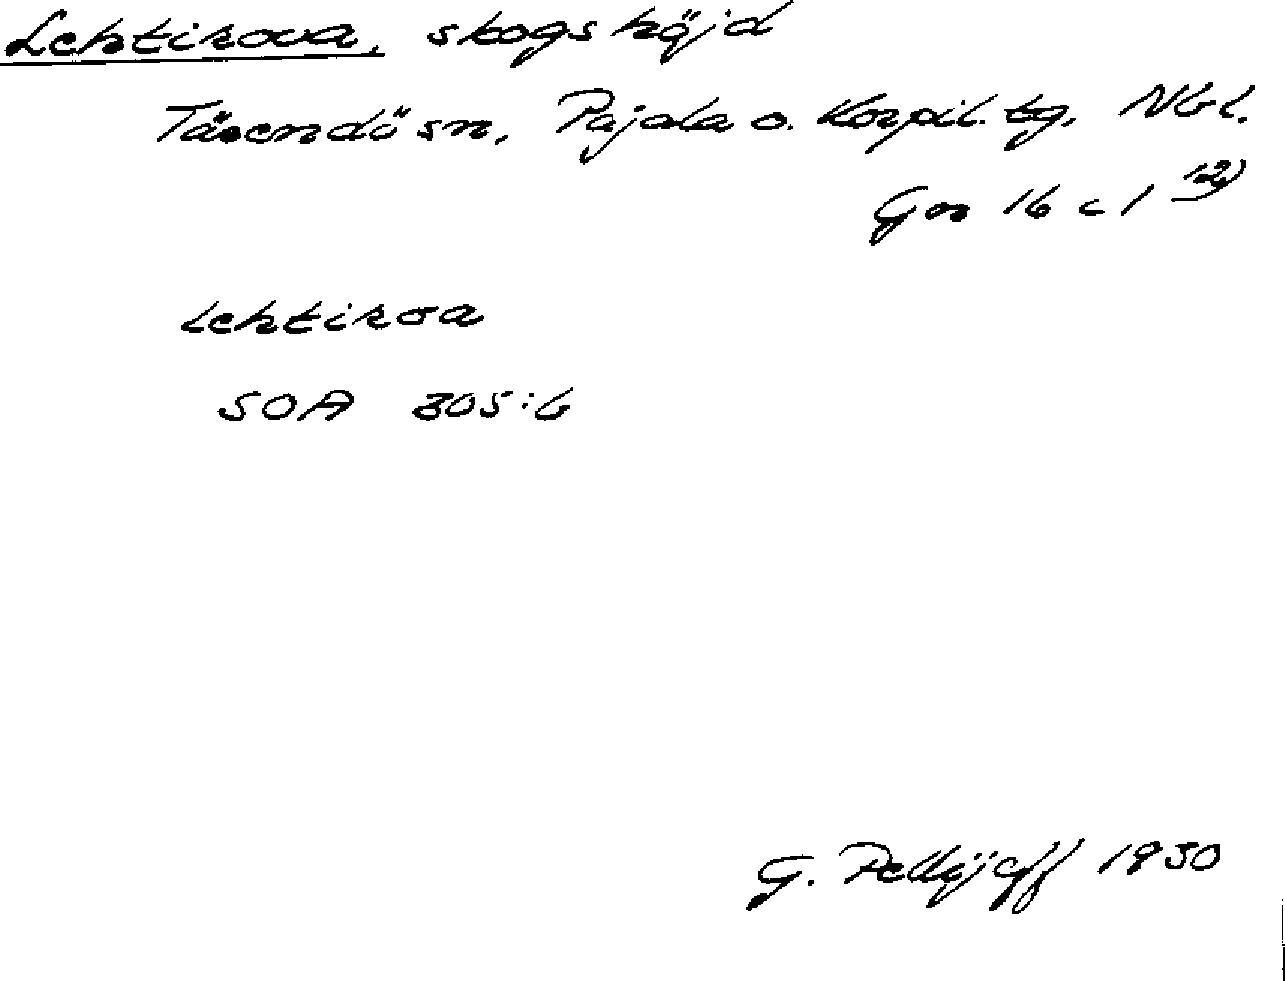 Lehtirova, skogshöjd
Tärendö sn, Pajala o. Korpil. tg. Nbl.
Gn 16 c 1 12)
lehtiroa
SOA 305:6
G. Pellijeff 1950